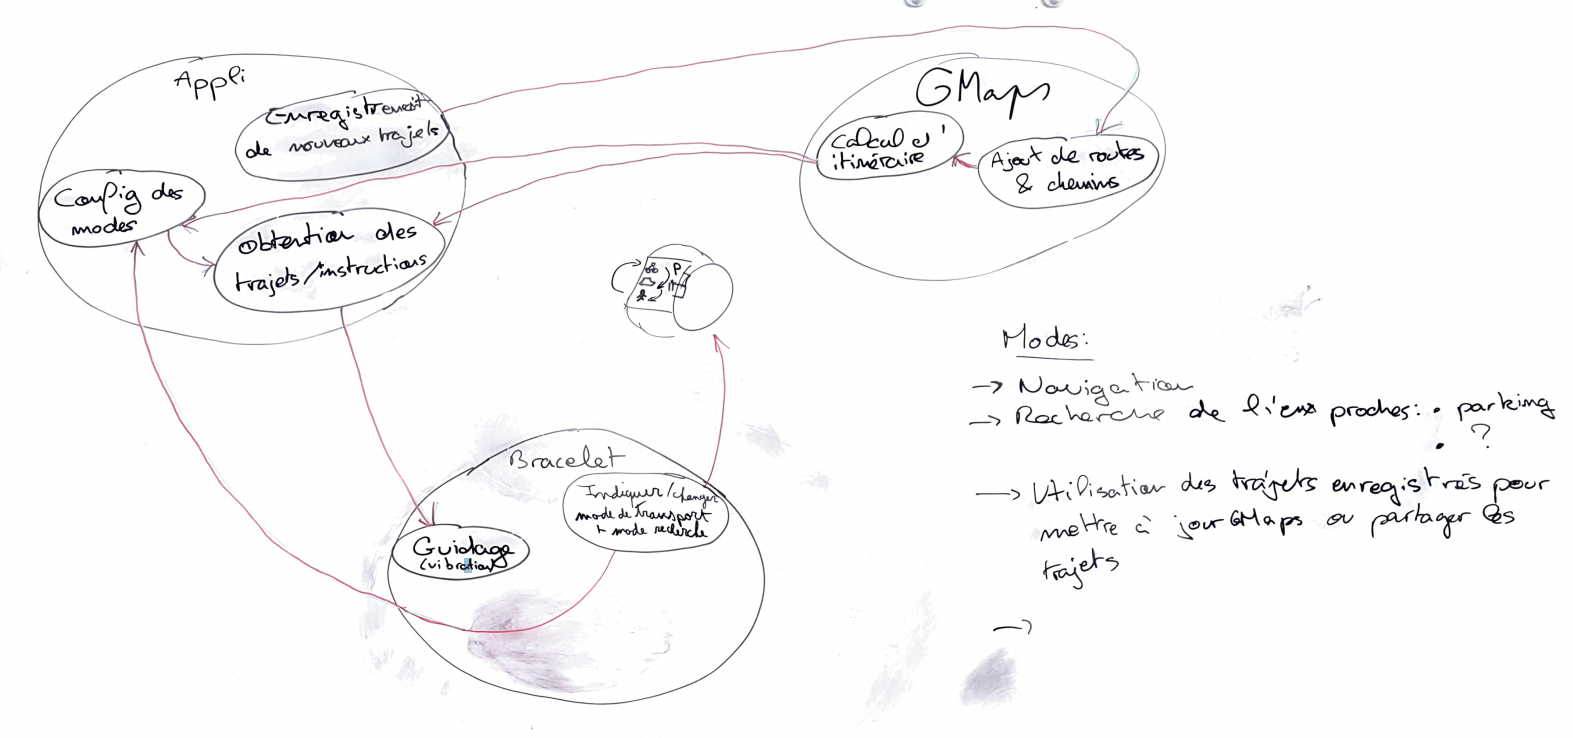 Appli
Enregistrement
de nouveaux trajets
Config des
modes
Obtention des
trajets/instructions
GMaps
Calcul d'
itinéraire
Ajout de routes
& chemins
P
Bracelet
Indiquer/changer
mode de transport
+ mode recherche
Guidage
(vibration)
Modes:
→ Navigation
→ Recherche de lieux proches: • parking
• ?
→ Utilisation des trajets enregistrés pour
mettre à jour GMaps ou partager les
trajets
→